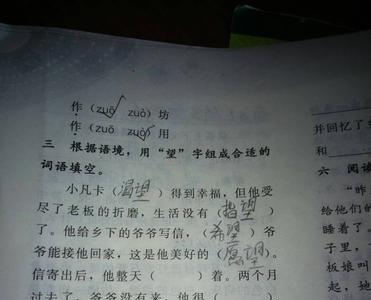 作(zuō zuò)坊
作(zuō zuò)用
三 根据语境,用“望”字组成合适的
词语填空。
小凡卡(渴望)得到幸福,但他受
尽了老板的折磨,生活没有(指望)
了。他给乡下的爷爷写信,(希望)爷
爷能接他回家,这是他美好的(愿望)。
信寄出后,他整天( )着。两个月
过去了,爷爷没有来,他很( )
并回忆了
和
六 阅读
“昨
给他们的
睡着了。
子里,
板娘叫
起,她